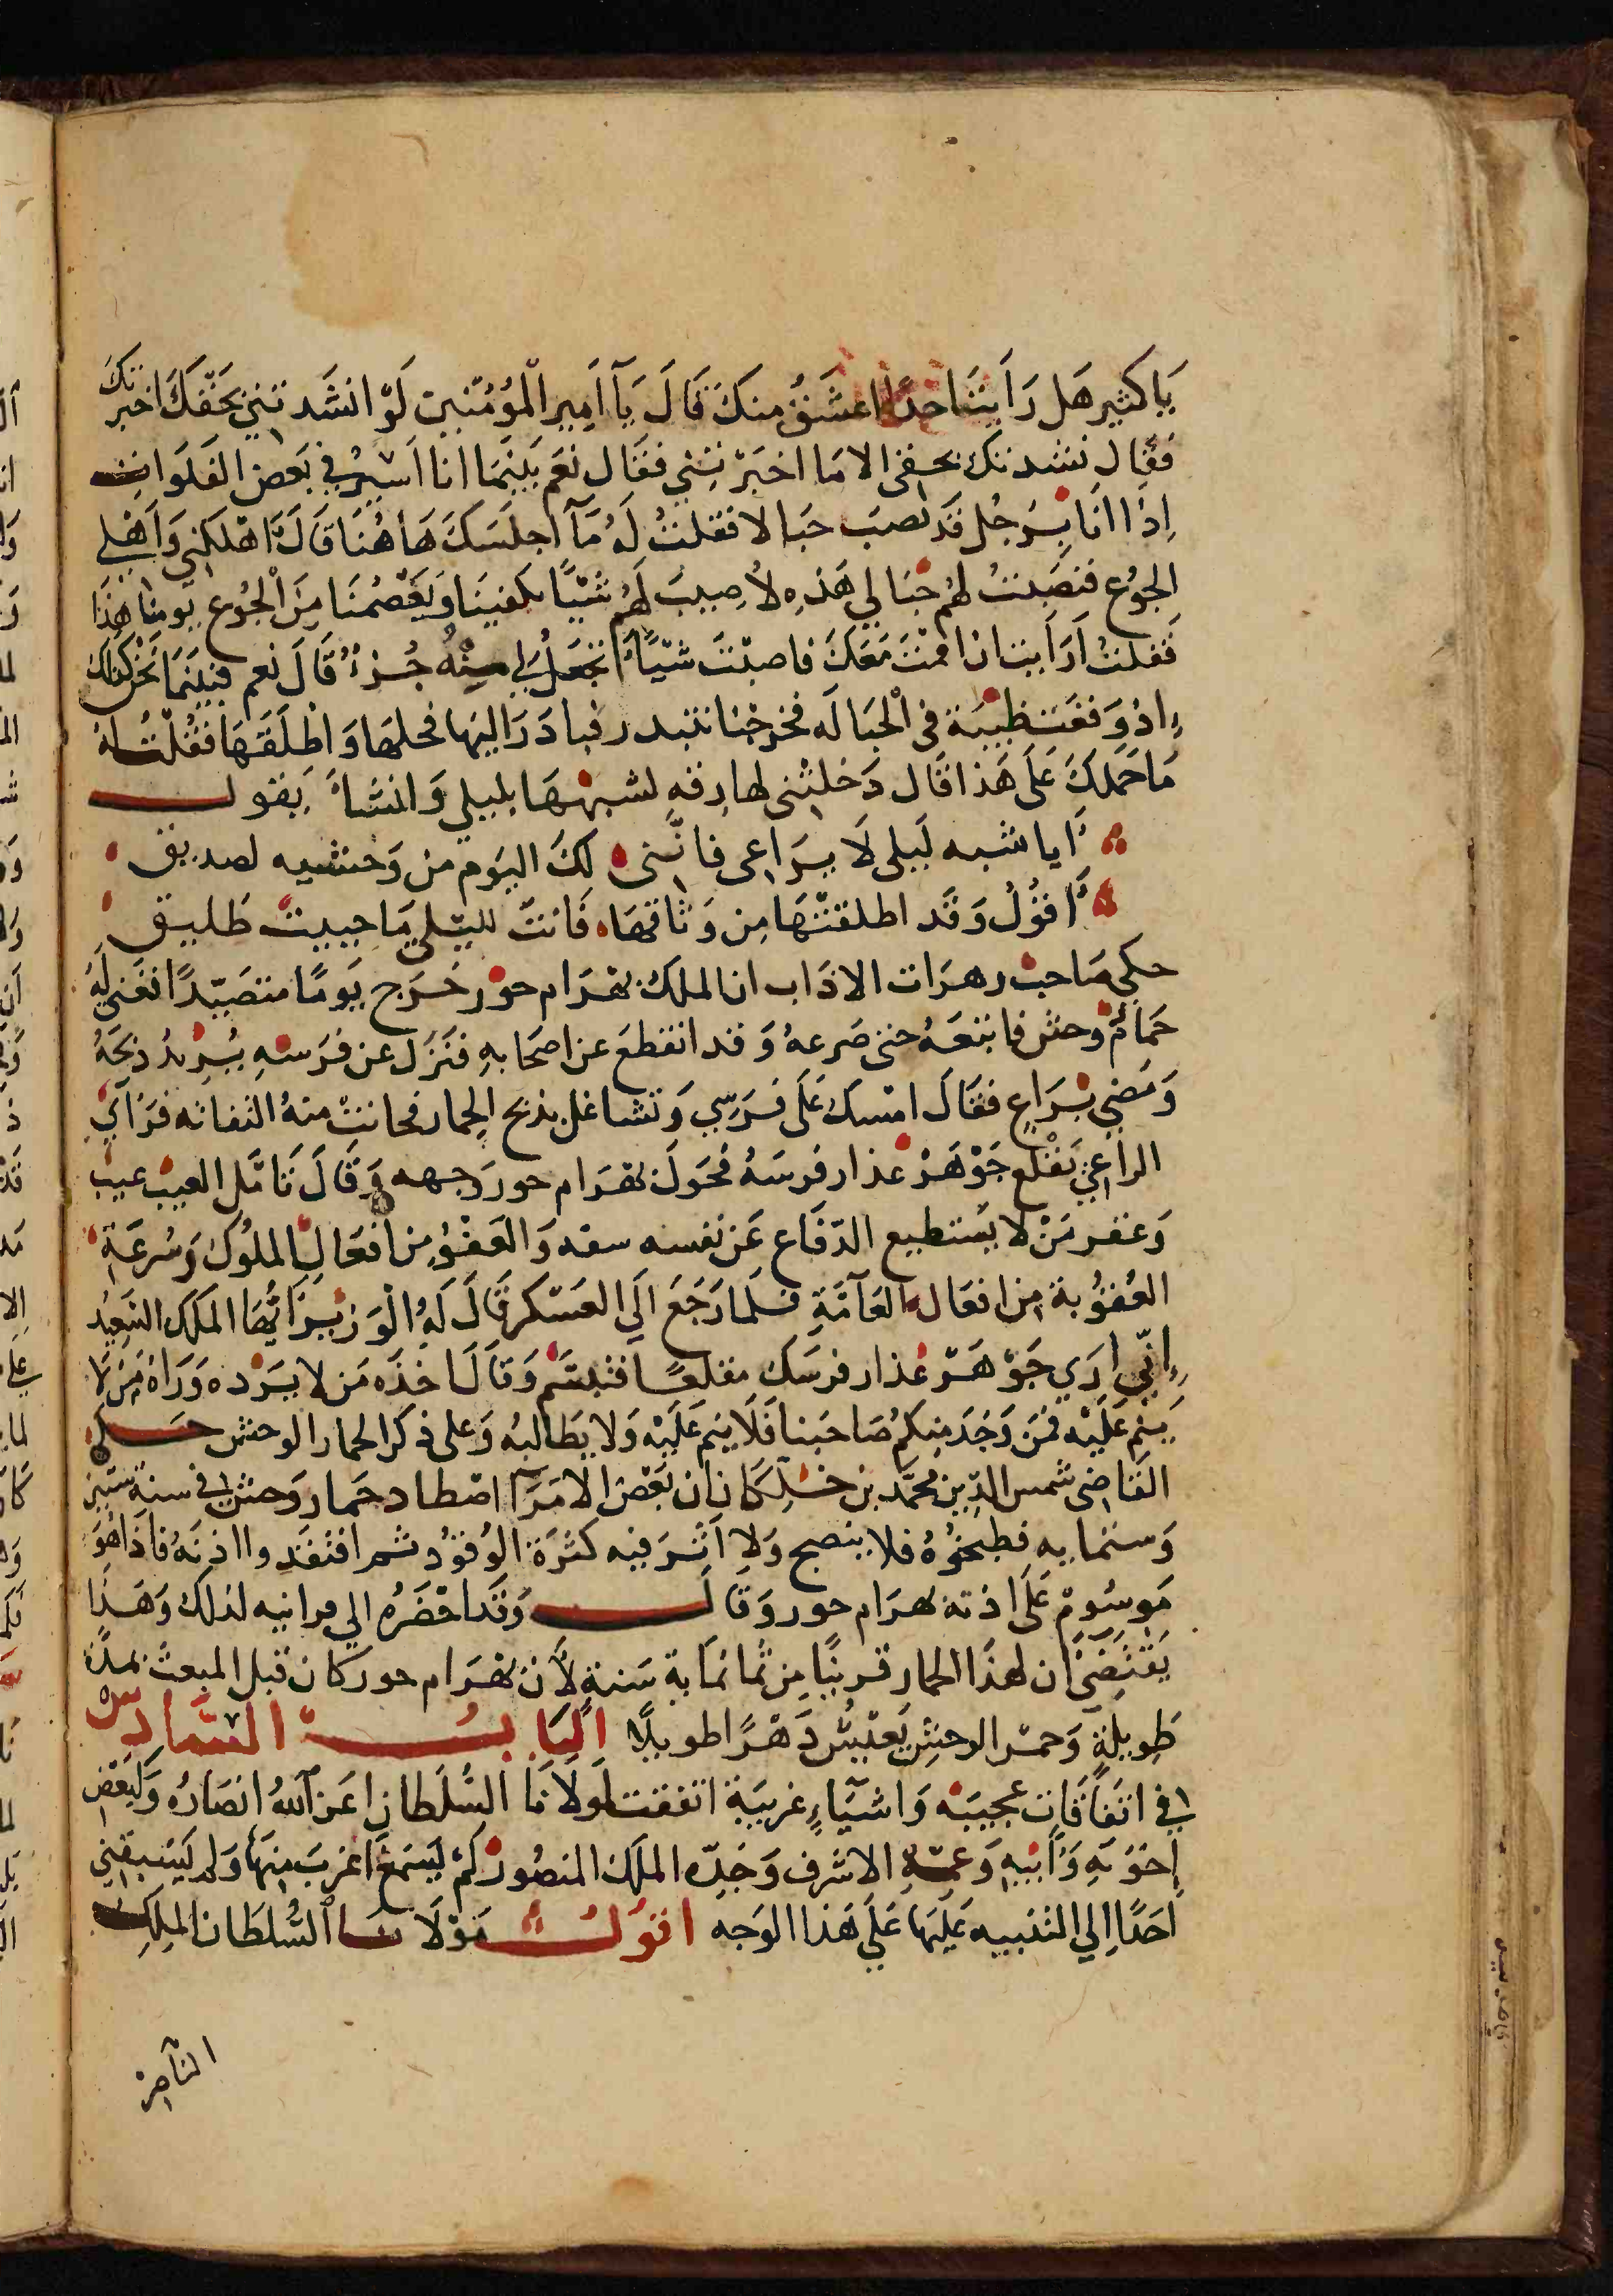 يَا كثير هَل رَاَيتَ احدًا اعشَقُ منكَ قَالَ يَآ اَمِير الْمؤُمنين لَوْ انشَدتني بحَقّكَ اخبَرتكَ
فقال نشدتك بحقى الا مَا اخبَرْتنِي فقَال نعَم بَينمَا انا اَسيْرُ في بَعض الفَلَوات
اِذا انَا برَجُل قَد نصبَ حبَالا فقلتُ لَهُ مَآ اجلَسَكَ هَاهُنَا قَالَ اهْلكني وَاَهْلي
الجوُع فنصَبتُ لهُم حبَالي هَذه لاُصِيبَ لَهُم شَيْئًا يكفينَا وَيَعْصُمنَا مِنَ الجُوع يَومنَا هَذا
فَقلتُ اَرَاَيت ان اقمْتَ مَعَكَ فاصبْتَ شَيْئًا اتجعَلُ لي مِنْهُ جُزءً قَالَ نعم فبَينَمَا نحْن كذلكَ
اِذ وَقعَت ظَبيْة فى الْحبَالَه فخرجْنا نبتدر فبادَرَ اليها فحلهَا وَاطْلَقَهَا فقُلْتُ لهُ
مَا حَملكَ عَلَى هَذا قَال دَخلتْني لهَا رِقه لشبههَا بليلي وَانشَأ يَقول
اَيا شبه لَيلى لَا ترَاعى فانّني لكَ اليَوم من وَحشيه لصديق
اَقوُلُ وَقَد اطلقتُهَا مِن وَثاقهَا فَانتَ لليلي مَا حييت طَليق
حكى صَاحب زهرَات الاداب ان الملك بهْرَام حور خَرج يَومًا متصَيّدًا فعَنى لَهُ
حمَار وحش فاتبَعَهُ حتى صَرعهُ وَقد انقطعَ عن اصحَابهِ فنَزل عن فرَسهِ يُرْيدُ ذبحَهُ
وَمَضي برَاعٍ فقَال امْسك عَلَى فرَسي وَتشاغل بذبح الحِمار فحانتْ منهُ التفاته فرَاَي
الراعي يَقْلع جَوْهَرْ عذار فرسَهُ فحَولَ بهْرَام حور وجهه وَقَالَ تَامّل العيب عيب
وَعقر مَنْ لا يَستطيع الدّفَاع عَن نفسه سفه وَالعَفْوُ مِن اَفعَال الملوُك وَسُرعَة
العُقوُبة من افعَال العَآمَّةِ فلمَا رَجَعَ الَي العَسْكر قَالَ لَهُ الْوَزيْر اَيُّهَا المَلك السَعِيُد
اِنّي ارَي جَوْهَرْ عذار فرسَك مقلعًا فتبسَّم وَقالَ اخذَه مَن لا يَرُده وَرَاهُ مَن لا
يَنم عَلَيْه فمَن وَجَد منِكُم صَاحبَنا فَلَا ينم عَلَيْه وَلا يَطالبُه وَعلى ذكر الحمار الوحش حكي
القَاضى شَمس الدِّين محمَّد بن خلكَان ان بَعْض الامَرآ اصْطاد حمَار وَحش في سنة ستين
وَستمايه فطبخُوُهُ فلا ينصبح وَلا اَثَر فيه كثرة الوُقوُد ثم افتقدوا اذنَهُ فاذا هُوَ
مَوسُومٌ عَلَى اذنه بهرَام حور وَقَال وَقَد احْضَرُه الي مراتيه لذلك وَهَذا
يَقتَضَى ان لهذا الحمار قريبًا مِن ثمانمَاية سَنة لاَن بهرَام حور كان قبل المبعث بمدّة
طَوِيلةٍ وَحمْر الوحش يَعيش دَهْرًا طويلًا البَاب السَّادس
في اتفَاقَات عجيبَة وَاشيَآءٍ غرِيبَة اتفقت لموْلَانَا السُّلطان اعَز اللّهُ انصَارهُ وَلبَعْض
اِخوَتهِ وَاَبيْهِ وَعَمّهِ الاشرف وَجَدّه الملك المنصُور لَمْ يَسمَع اَغرَبَ منِهَا وَلم يَسْبقني
اَحَدًا اِلي التنبيه عَليهَا عَلَي هَذا الوَجه اقوُل مَوْلَانَا السُّلطَان الملِك
الناصر